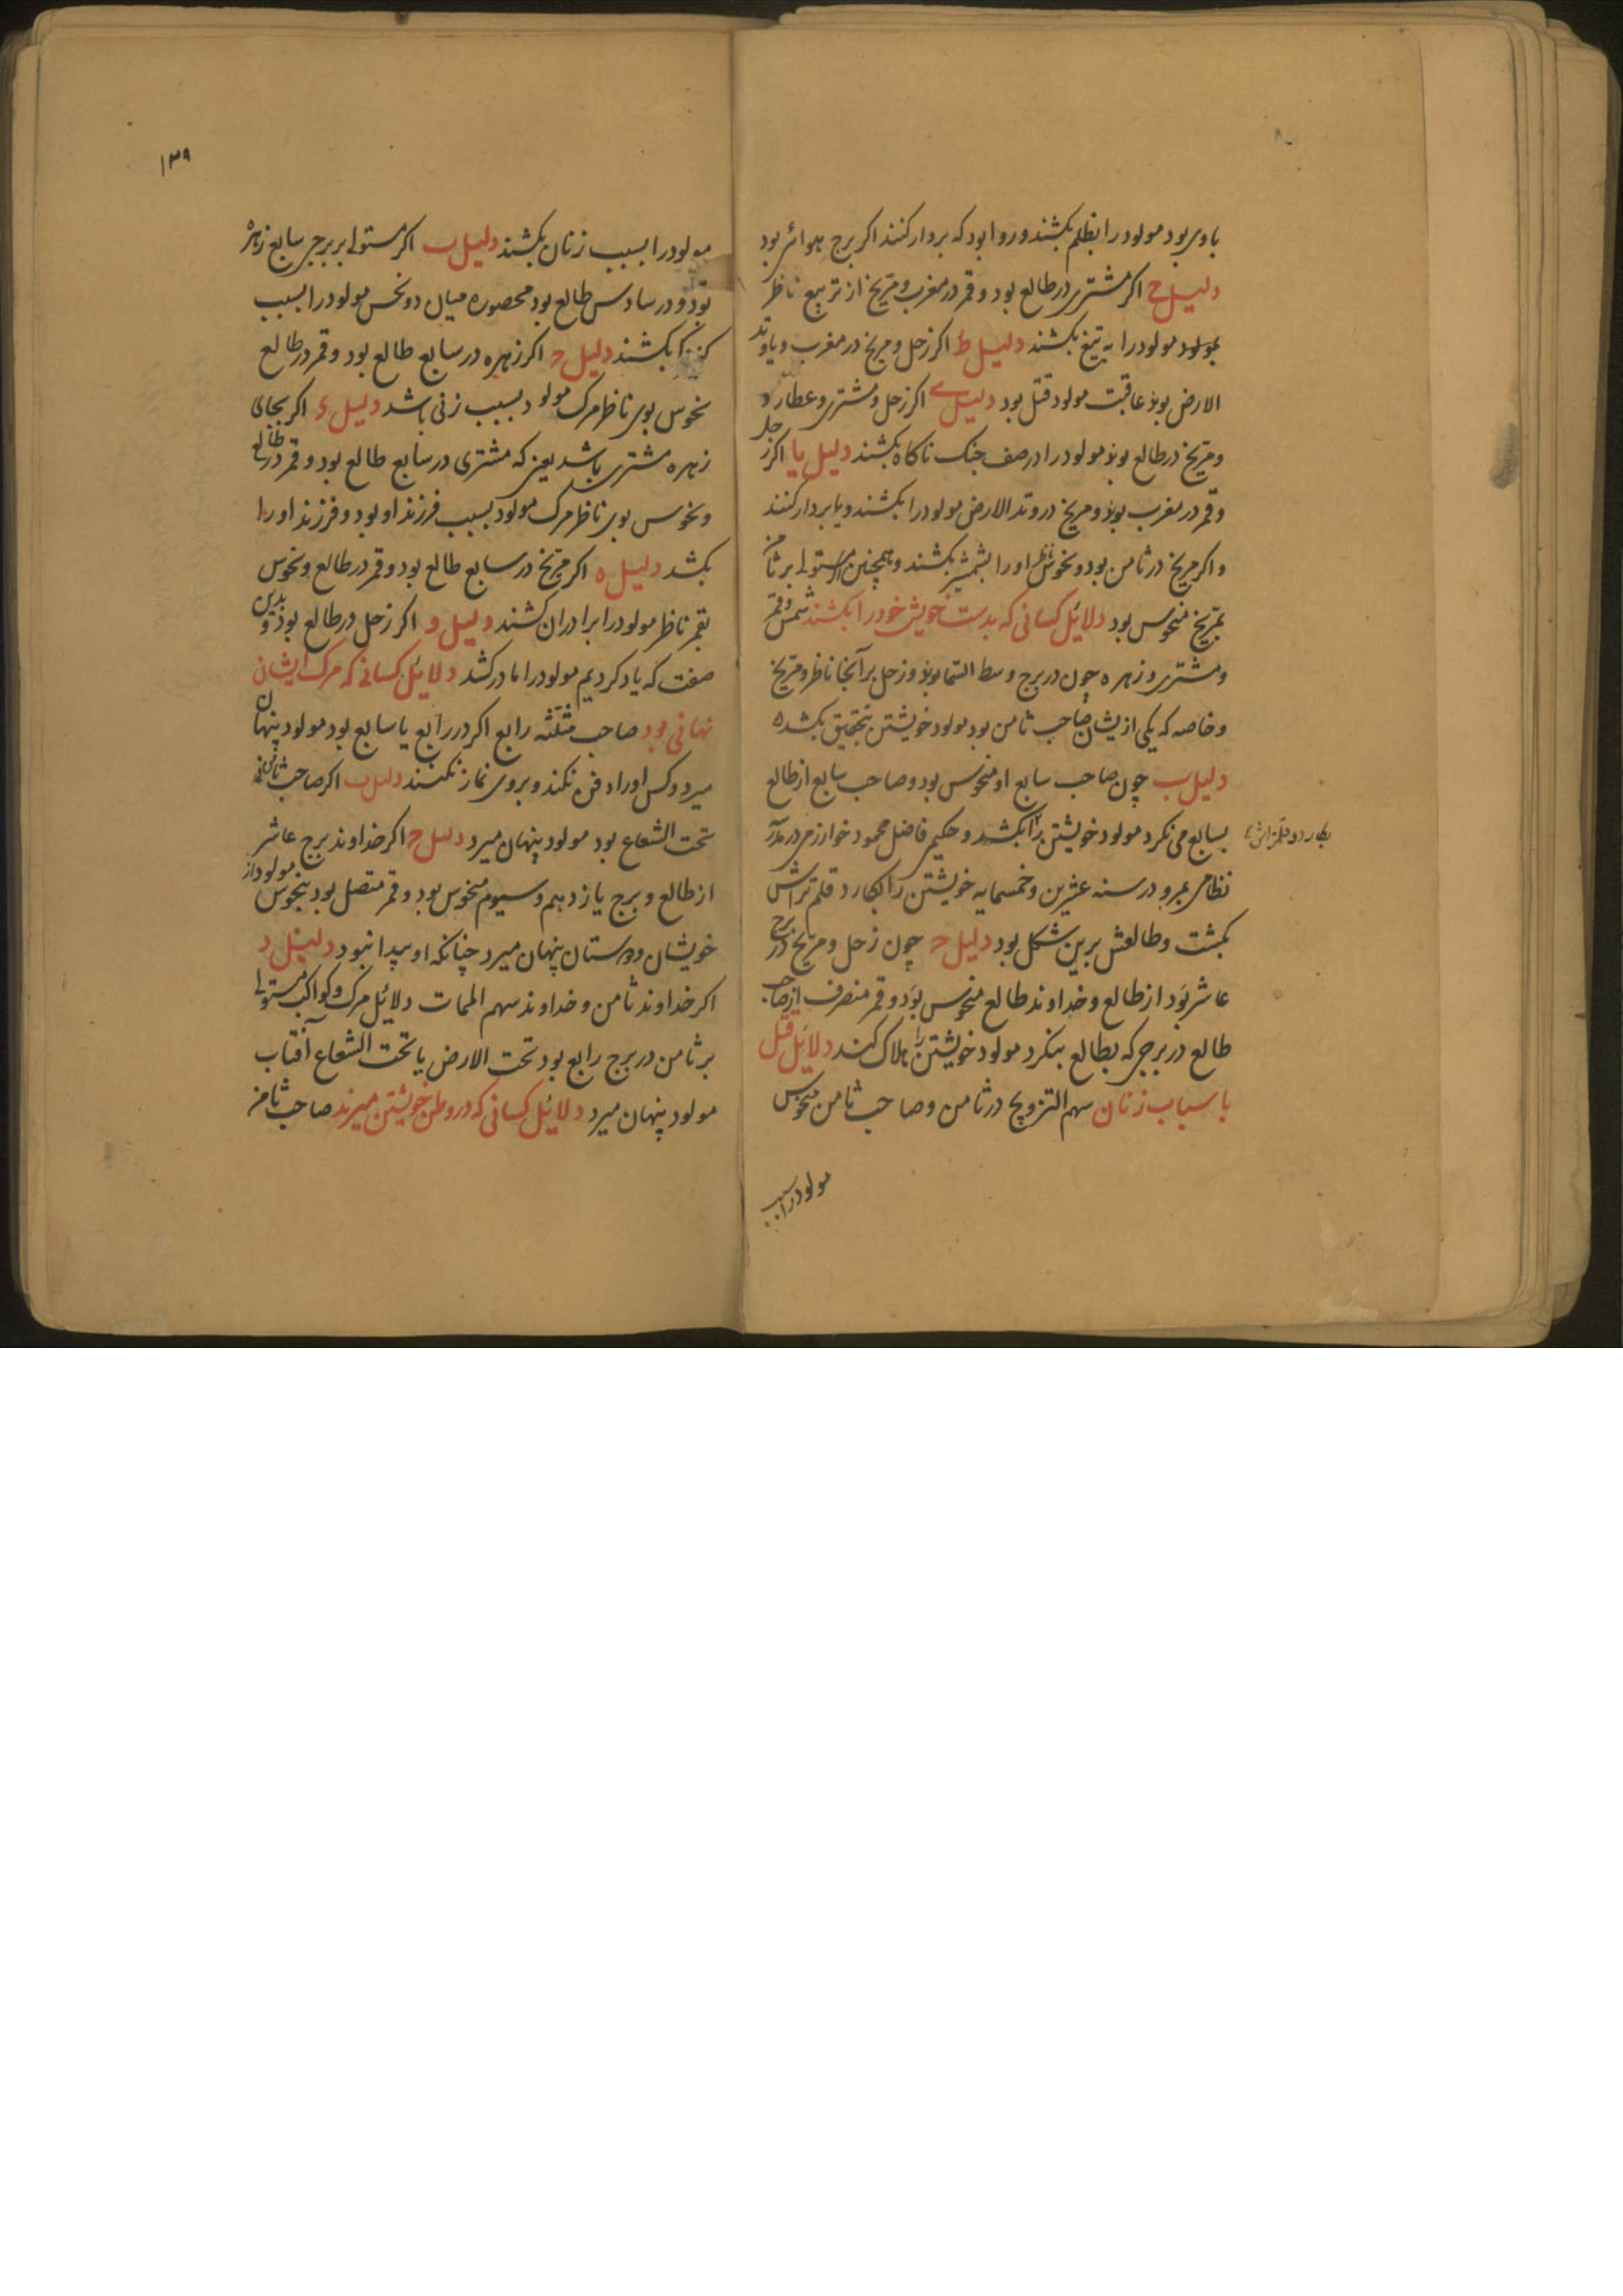 با وی بود مولود را بظلم بکشند و روا بود که بردار کنند اکر برج هوائی بود
دلیل ح اکر مشتری در طالع بود و قمر در مغرب و مریخ از تربیع ناظر
بمولود مولود را به تیغ بکشند دلیل ط اکر زحل و مریخ در مغرب و یا وتد
الارض بوند عاقبت مولود قتل بود دلیل ی اکر زحل و مشتری و عطارد
و مریخ در طالع بوند مولود را در صف جنک ناکاه بکشند دلیل یا اکر زحل
و قمر در مغرب بوند و مریخ در وتد الارض مولود را بکشند و یا بردار کنند
و اکر مریخ در ثامن بود و نحوس ناظر او را بشمشیر بکشند و همچنین مستولی بر ثامن
بمریخ منحوس بود دلائل کسانی که بدست خویش خود را بکشند شمس و قمر
و مشتری و زهره چون در برج وسط السما بوند و زحل بر آنجا ناظر و مریخ
و خاصه که یکی ازیشان صاحب ثامن بود مولود خویشتن بتحقیق بکشد
دلیل ب چون صاحب سابع او منحوس بود و صاحب سابع از طالع
بسابع می نکرد مولود خویشتن را بکشد و حکیمی فاضل محمود خوارزمی در مدرسه
بکارد قلمتراش
نظامی بمرو در سنه عشرین و خمسمایه خویشتن را بکارد قلم تراش
بکشت و طالعش برین شکل بود دلیل ج چون زحل و مریخ در برج
عاشر بود از طالع و خداوند طالع منحوس بود و قمر منصرف از صاحب
طالع در برجی که بطالع بنکرد مولود خویشتن را هلاک کند دلائل قتل
باسباب زنان سهم التزویج در ثامن و صاحب ثامن منحوس
مولود را بسبب
۱۳۹
مولود را بسبب زنان بکشند دلیل ب اکر مستولی بر برج سابع زهره
بود و در سادس طالع بود محصوره میان دو نحس مولود را بسبب
بکشند دلیل ج اکر زهره در سابع طالع بود و قمر در طالع
نحوس بوی ناظر مرک مولود بسبب زنی باشد دلیل د اکر بجای
زهره مشتری باشد یعنی که مشتری در سابع طالع بود و قمر در طالع
و نحوس بوی ناظر مرک مولود بسبب فرزند او بود و فرزند او را
بکشد دلیل ه اکر مریخ در سابع طالع بود و قمر در طالع و نحوس
بقمر ناظر مولود را برادران کشند دلیل و اکر زحل در طالع بود و بدین
صفت که یاد کردیم مولود را مادر کشد دلائل کسانی که مرک ایشان
نهانی بود صاحب مثلثه رابع اکر در رابع یا سابع بود مولود پنهان
میرد و کس او را دفن نکند و بروی نماز نکنند دلیل ب اکر صاحب ثامن
تحت الشعاع بود مولود پنهان میرد دلیل ج اکر خداوند برج عاشر
از طالع و برج یازدهم و سیوم منحوس بود و قمر متصل بود بنحوس مولود از
خویشان و دوستان پنهان میرد چنانکه او پیدا نبود دلیل د
اکر خداوند ثامن و خداوند سهم الممات دلائل مرک و کواکب مستولی
بر ثامن در برج رابع بود تحت الارض یا تحت الشعاع آفتاب
مولود پنهان میرد دلائل کسانی که در وطن خویشتن میرند صاحب ثامن